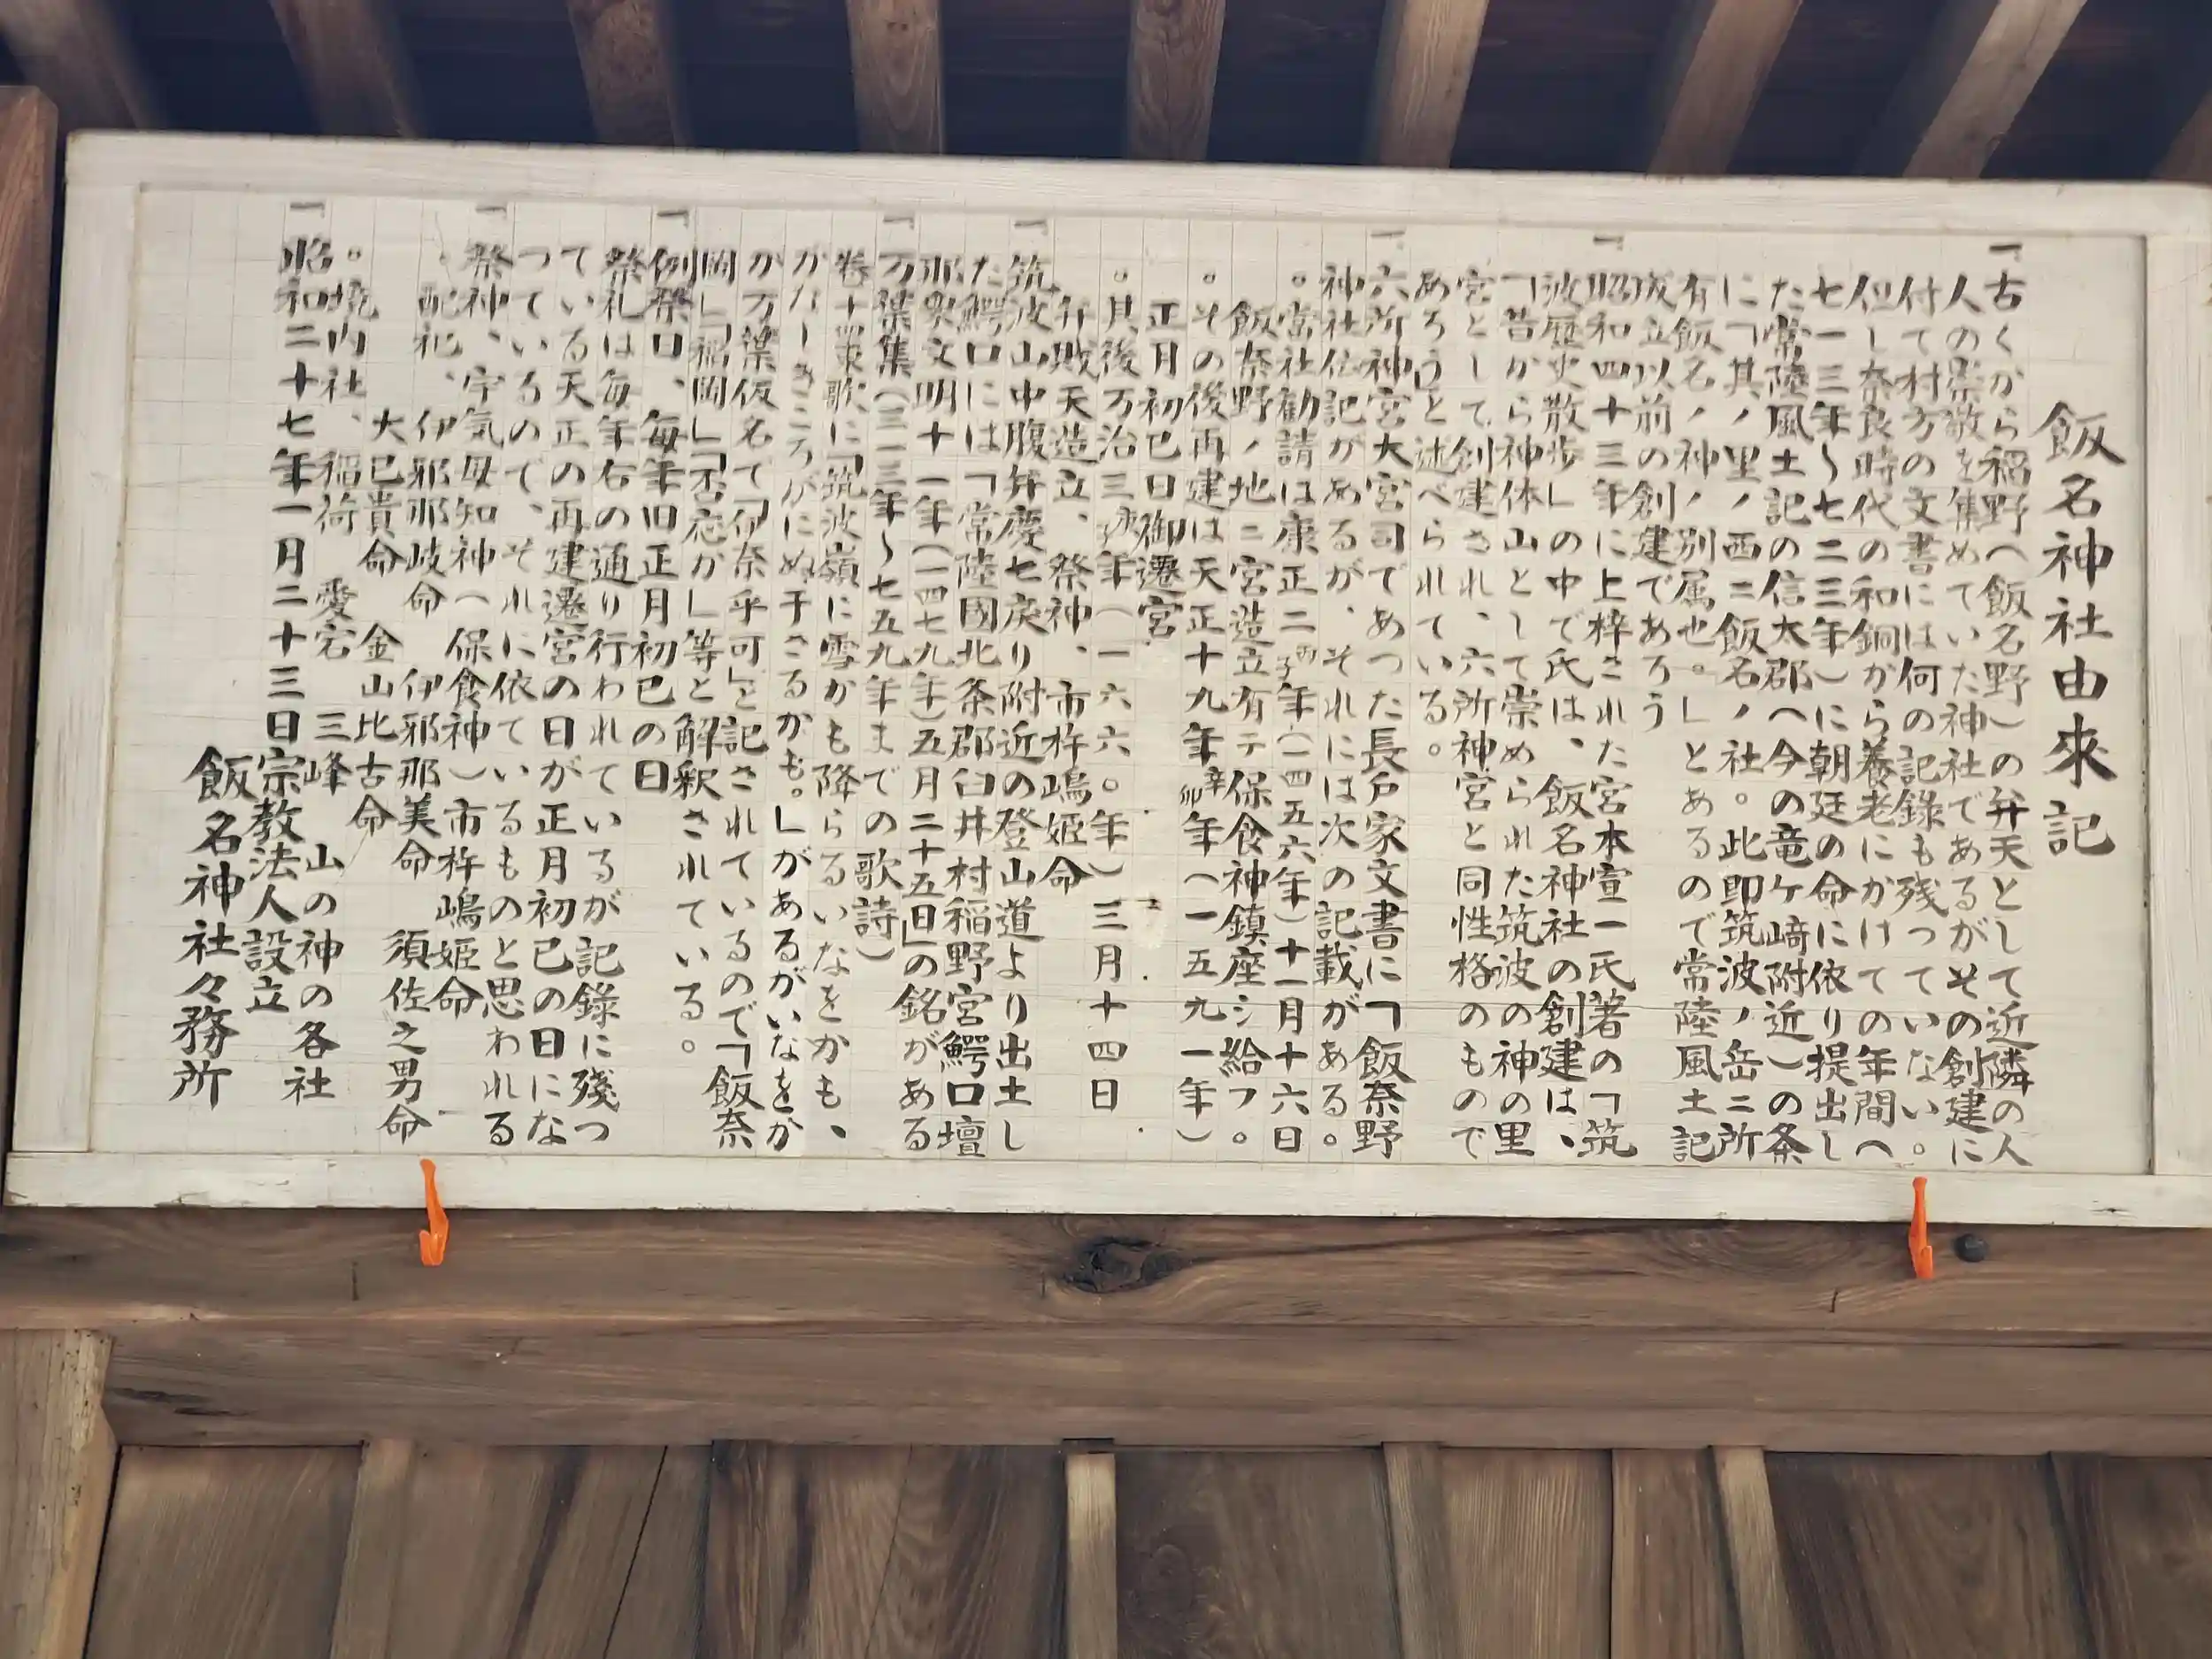 飯名神社由來記
一古くから稲野(飯名野)の弁天として近隣の人
人の崇敬を集めていた神社であるがその創建に
付て村方の文書には何の記録も残っていない。
但し奈良時代の和銅から養老にかけての年間(
七一三年~七二三年)に朝廷の命に依り提出し
た常陸風土記の信太郡(今の竜ケ﨑附近)の条
に「其ノ里ノ西ニ飯名ノ社。此即筑波ノ岳ニ所
有飯名ノ神ノ別属也。」とあるので常陸風土記
成立以前の創建であろう
一昭和四十三年に上梓された宮本宣一氏著の「筑
波歴史散歩」の中で氏は、飯名神社の創建は、
「昔から神体山として崇められた筑波の神の里
宮として創建され、六所神宮と同性格のもので
あろう」と述べられている。
一六所神宮大宮司であった長戸家文書に「飯奈野
神社伝記があるが、それには次の記載がある。
。當社勧請は康正二丙子年(一四五六年)十一月十六日
飯奈野ノ地ニ宮造立有テ保食神鎮座シ給フ。
。その後再建は天正十九年辛卯年(一五九一年)
正月初巳日御遷宮
。其後万治三庚子年(一六六。年)三月十四日
弁賊天造立、祭神、市杵嶋姫命
一筑波山中腹弁慶七戻り附近の登山道より出土し
た鰐口には「常陸國北条郡臼井村稲野宮鰐口壇
那衆文明十一年(一四七九年)五月二十五日」の銘がある
一万葉集(三一三年~七五九年までの歌詩)
巻十四東歌に「筑波嶺に雪かも降らるいなをかも、
かなしきころがにぬ干さるかも。」があるがいなをか
が万葉仮名で「伊奈乎可」と記されているので「飯奈
岡」「稲岡」「否応か」等と解釈されている。
一例祭日、毎年旧正月初巳の日
祭礼は毎年右の通り行われているが記録に残っ
ている天正の再建遷宮の日が正月初巳の日にな
っているので、それに依ているものと思われる
一祭神、宇気母知神(保食神)市杵嶋姫命
。配祀、伊邪那岐命 伊邪那美命 須佐之男命
大己貴命 金山比古命
。境内社、稲荷 愛宕 三峰 山の神の各社
一昭和二十七年一月二十三日宗教法人設立
飯名神社々務所